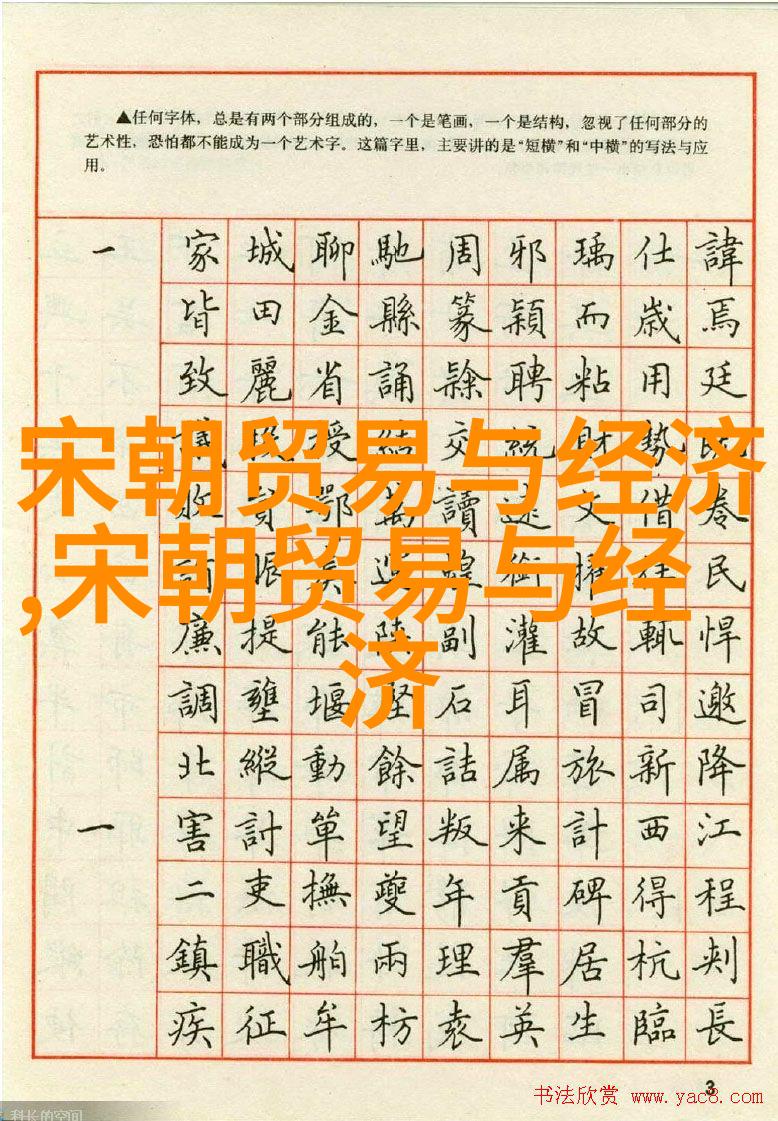 ▲任何字体，总是有两个部分组成的，一个是笔画，一个是结构，忽视了任何部分的
艺术性，恐怕都不能成为一个艺术字。这篇字里，主要讲的是“短横”和“中横”的写法与应
用。
一 家 城 聊 馳 周 邪 瑀 仕 諱
皆 田 金 縣 篆 潁 而 歲 焉
致 麗 省 誦 隸 聘 粘 用 廷
授 結 交 統 財 勢
宋朝贸易与经济
鄂 萬 讀 述 文 借 卷
,宋朝贸易与经
民
廉 提 能 陸 副 灌 故 輒 悍
济
調 壅 堰 堅 石 耳 冒 司 邀
北 縱 動 餘 詰 属 旅 新 降
一 害 討 單 望 叛 来 計 西 江
二 吏 撫 夔 年 貢 碑 得 程
鎮 職 舶 兩 理 羣 居 杭 刺
疾 征 牟 枋 袁 英 生 臨 長
3
书法欣赏 www.yac8.com
科长的空间